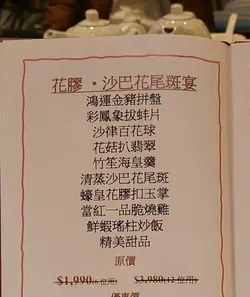 花膠·沙巴花尾斑宴
鴻運金豬拼盤
彩鳳象拔蚌片
沙律百花球
花菇扒翡翠
竹笙海皇羹
清蒸沙巴花尾斑
蠔皇花膠扣玉掌
當紅一品脆燒雞
鮮蝦瑤柱炒飯
精美甜品
原價
$1,990(6位用) $3,980(12位用)
優惠價